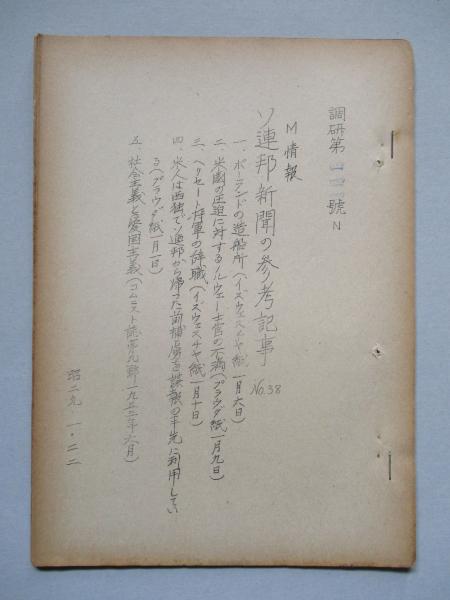 調研第 號 N
M情報
ソ連邦新聞の参考記事 No.38
一、ポーランドの造船所(イズヴェスチヤ紙一月六日)
二、米國の圧迫に対するノルウェー士官の不満(プラウダ紙一月九日)
三、ヘリセート将軍の辞職(イズヴェスチヤ紙一月十日)
四、米人は西独でソ連邦から帰った前捕虜を諜報の手先に利用してい
る(プラウダ紙一月一日)
五、社会主義と愛国主義(コムニスト誌第九號一九五三年六月)
昭二九 一・二二